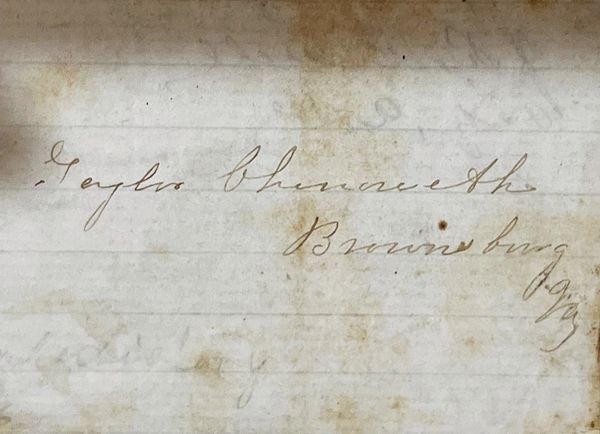 Taylor Chenoweth
Brownsburg
Va